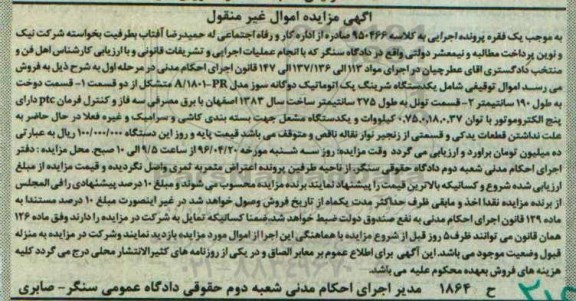 آگهی مزایده اموال غیر منقول
به موجب یک فقره پرونده اجرایی به کلاسه ۹۵۰۴۶۶ صادره از اداره کار و رفاه اجتماعی له حمیدرضا آفتاب بطرفیت بخواسته شرکت نیک
و نوین پرداخت مطالبه و نیمعشر دولتی واقع در دادگاه سنگر که با انجام عملیات اجرایی و تشریفات قانونی و با ارزیابی کارشناس اهل فن و
منتخب دادگستری اقای عطرچیان در اجرای مواد ۱۱۳ الی ۱۳۷/۱۳۶ الی ۱۴۷ قانون اجرای احکام مدنی در مرحله اول به شرح ذیل به فروش
می رسد اموال توقیفی شامل یکدستگاه شرینگ پک اتوماتیک دوگانه سوز مدل A/۱۸۰۱-PR متشکل از دو قسمت ۱- قسمت دوخت
به طول ۱۹۰ سانتیمتر ۲- قسمت تونل به طول ۲۷۵ سانتیمتر ساخت سال ۱۳۸۳ اصفهان با برق مصرفی سه فاز و کنترل فرمان ptc دارای
پنج الکتروموتور با توان ۰.۳۷،۰.۱۸،۰.۷۵ کیلووات و یکدستگاه مشعل جهت بسته بندی کاشی و سرامیک و غیره فعلا در حال حاضر به
علت نداشتن قطعات یدکی و قسمتی از زنجیر نوار نقاله ناقص و متوقف می باشد قیمت پایه و روز این دستگاه ۱۰۰/۰۰۰/۰۰۰ ریال به عبارتی
ده میلیون تومان براورد و ارزیابی می گردد وقت مزایده: روز سه شنبه مورخه ۹۶/۰۴/۲۰ از ساعت ۹/۵ الی ۱۰ صبح. محل مزایده : دفتر
اجرای احکام مدنی شعبه دوم دادگاه حقوقی سنگر. از ناحیه طرفین پرونده اعتراض مثمر به ثمری واصل نگردیده و قیمت مزایده از مبلغ
ارزیابی شده شروع و کسانیکه بالاترین قیمت را پیشنهاد نمایند برنده مزایده محسوب می شوند و مبلغ ۱۰ درصد پیشنهادی را فی المجلس
از برنده مزایده نقدا اخذ و مابقی ظرف حداکثر مدت یکماه از تاریخ فروش وصول خواهد شد در غیر اینصورت مبلغ ۱۰ درصد مستندا به
ماده ۱۲۹ قانون اجرای احکام مدنی به نفع صندوق دولت ضبط خواهد شد. ضمنا کسانیکه تمایل به شرکت در مزایده را دارند وفق ماده ۱۲۶
همان قانون می توانند ظرف ۵ روز قبل از شروع مزایده با هماهنگی این اجرا از اموال مورد مزایده بازدید نمایند وشرکت در مزایده به منزله
قبول وضعیت موجود می باشد. این آگهی برای اطلاع عموم بر معابر الصاق و در یکی از روزنامه های کثیرالانتشار محلی درج می گردد کلیه
هزینه های فروش بعهده محکوم علیه می باشد.
ح ۱۸۶۴ مدیر اجرای احکام مدنی شعبه دوم حقوقی دادگاه عمومی سنگر- صابری